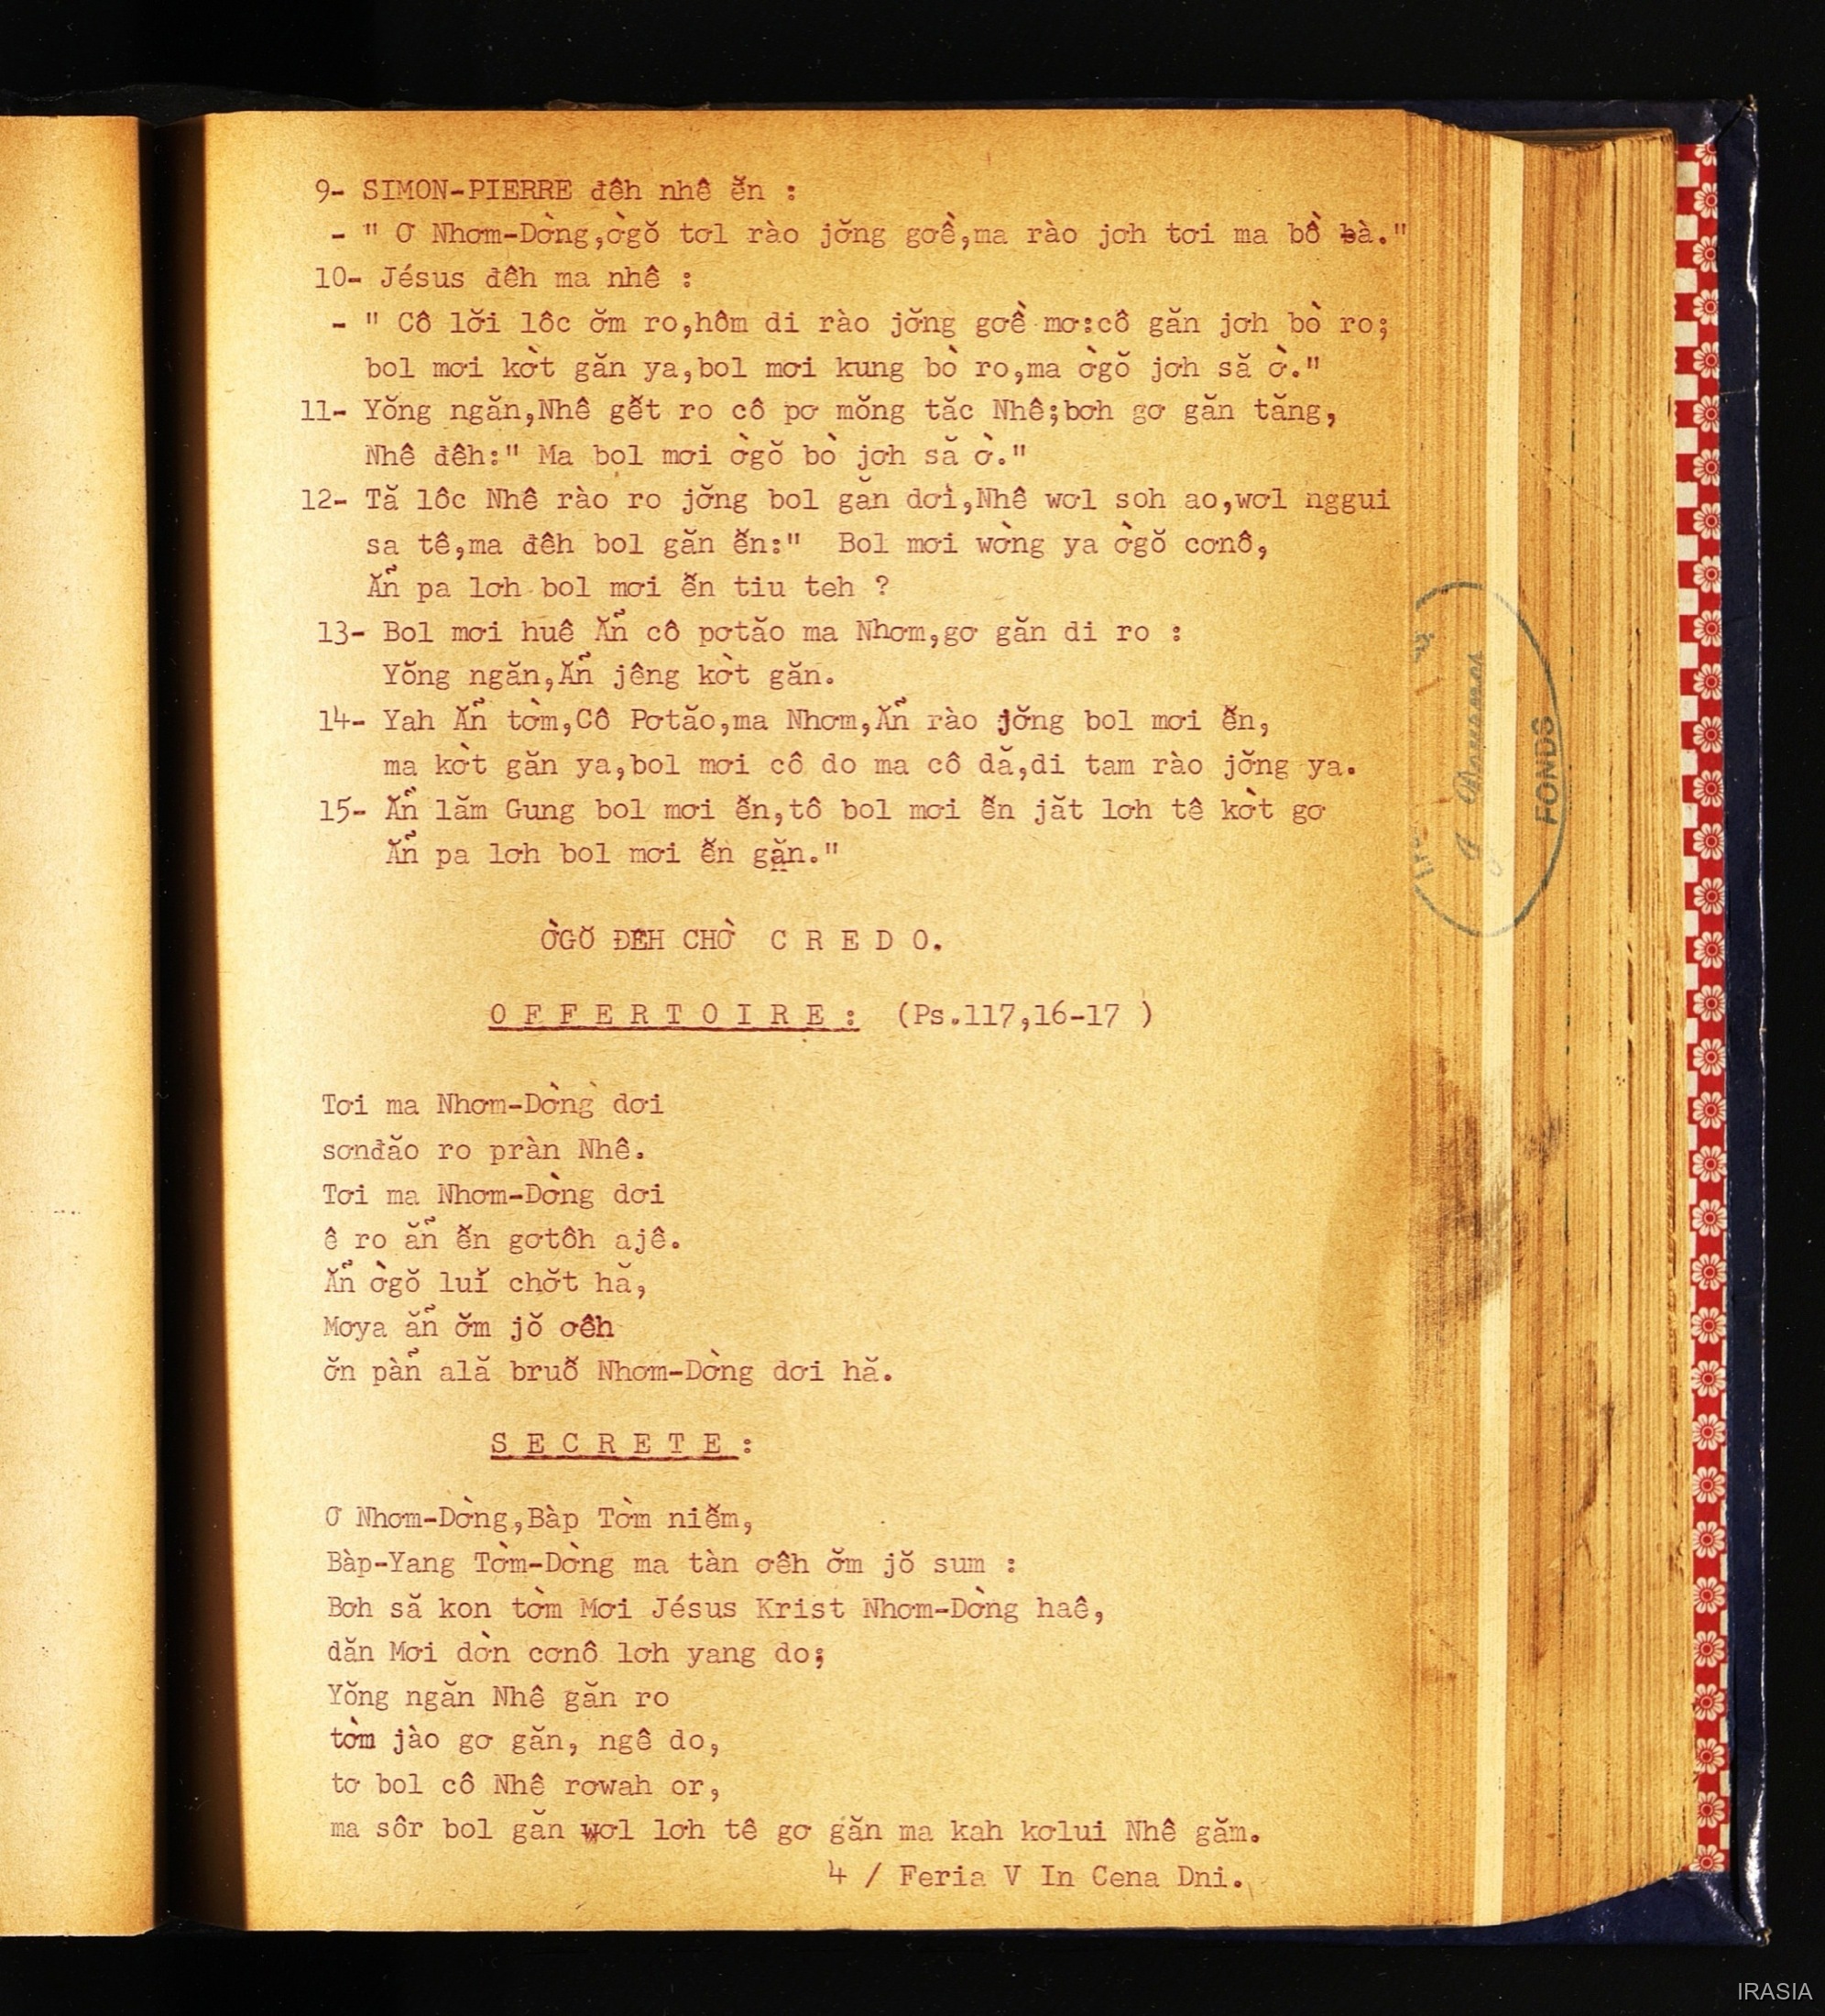 9- SIMON-PIERRE đêh nhê ê̆n :
- " Ơ Nhơm-Dờng,ờgŏ tơl rào jơ̆ng gơề,ma rào jơh tơi ma bồ bà."
10- Jésus đêh ma nhê :
- " Cô lơ̆i lôc ơ̆m ro,hôm di rào jơ̆ng gơề mơ:cô găn jơh bò ro;
bol mơi kờt găn ya,bol mơi kung bò ro,ma ờgŏ jơh să ờ."
11- Yŏng ngăn,Nhê gê̆t ro cô pơ mŏng tăc Nhê;bơh gơ găn tăng,
Nhê đêh:" Ma bol mơi ờgŏ bò jơh să ờ."
12- Tă lôc Nhê rào ro jơ̆ng bol găn dơi,Nhê wơl soh ao,wơl nggui
sa tê,ma đêh bol găn ê̆n:" Bol mơi wờng ya ờgŏ cơnô,
Ẳn pa lơh bol mơi ê̆n tiu teh ?
13- Bol mơi huê Ẳn cô pơtăo ma Nhơm,gơ găn di ro :
Yŏng ngăn,Ẳn jêng kờt găn.
14- Yah Ẳn tờm,Cô Pơtăo,ma Nhơm,Ẳn rào jơ̆ng bol mơi ê̆n,
ma kờt găn ya,bol mơi cô do ma cô dă,di tam rào jơ̆ng ya.
15- Ẳn lăm Gung bol mơi ê̆n,tô bol mơi ê̆n jăt lơh tê kờt gơ
Ẳn pa lơh bol mơi ê̆n găn."
ỜGŎ ĐÊH CHỜ C R E D O.
O F F E R T O I R E : (Ps.117,16-17 )
Tơi ma Nhơm-Dờng dơi
sơnđăo ro pràn Nhê.
Tơi ma Nhơm-Dờng dơi
ê ro ẳn ê̆n gơtôh ajê.
Ẳn ờgŏ luĭ chơ̆t hă,
Mơya ẳn ơ̆m jŏ ơêh
ơ̆n pàn̉ ală bruô̆ Nhơm-Dờng dơi hă.
S E C R E T E :
Ơ Nhơm-Dờng,Bàp Tờm niê̆m,
Bàp-Yang Tờm-Dờng ma tàn ơêh ơ̆m jŏ sum :
Bơh să kon tờm Mơi Jésus Krist Nhơm-Dờng haê,
dăn Mơi dờn cơnô lơh yang do;
Yŏng ngăn Nhê găn ro
tờm jào gơ găn, ngê do,
tơ bol cô Nhê rơwah or,
ma sôr bol găn wơl lơh tê gơ găn ma kah kơlui Nhê găm.
4 / Feria V In Cena Dni.
FONDS
IRASIA